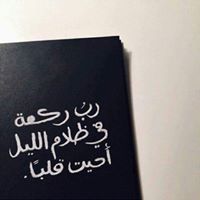 ربُ ركعة
في ظلام الليل
أحيت قلبًا.